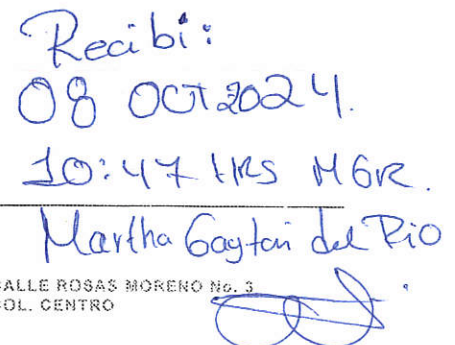 Recibi:
08 OCT 2024.
10:47 HRS MGR.
Martha Gaytan del Rio
CALLE ROSAS MORENO No. 3
COL. CENTRO